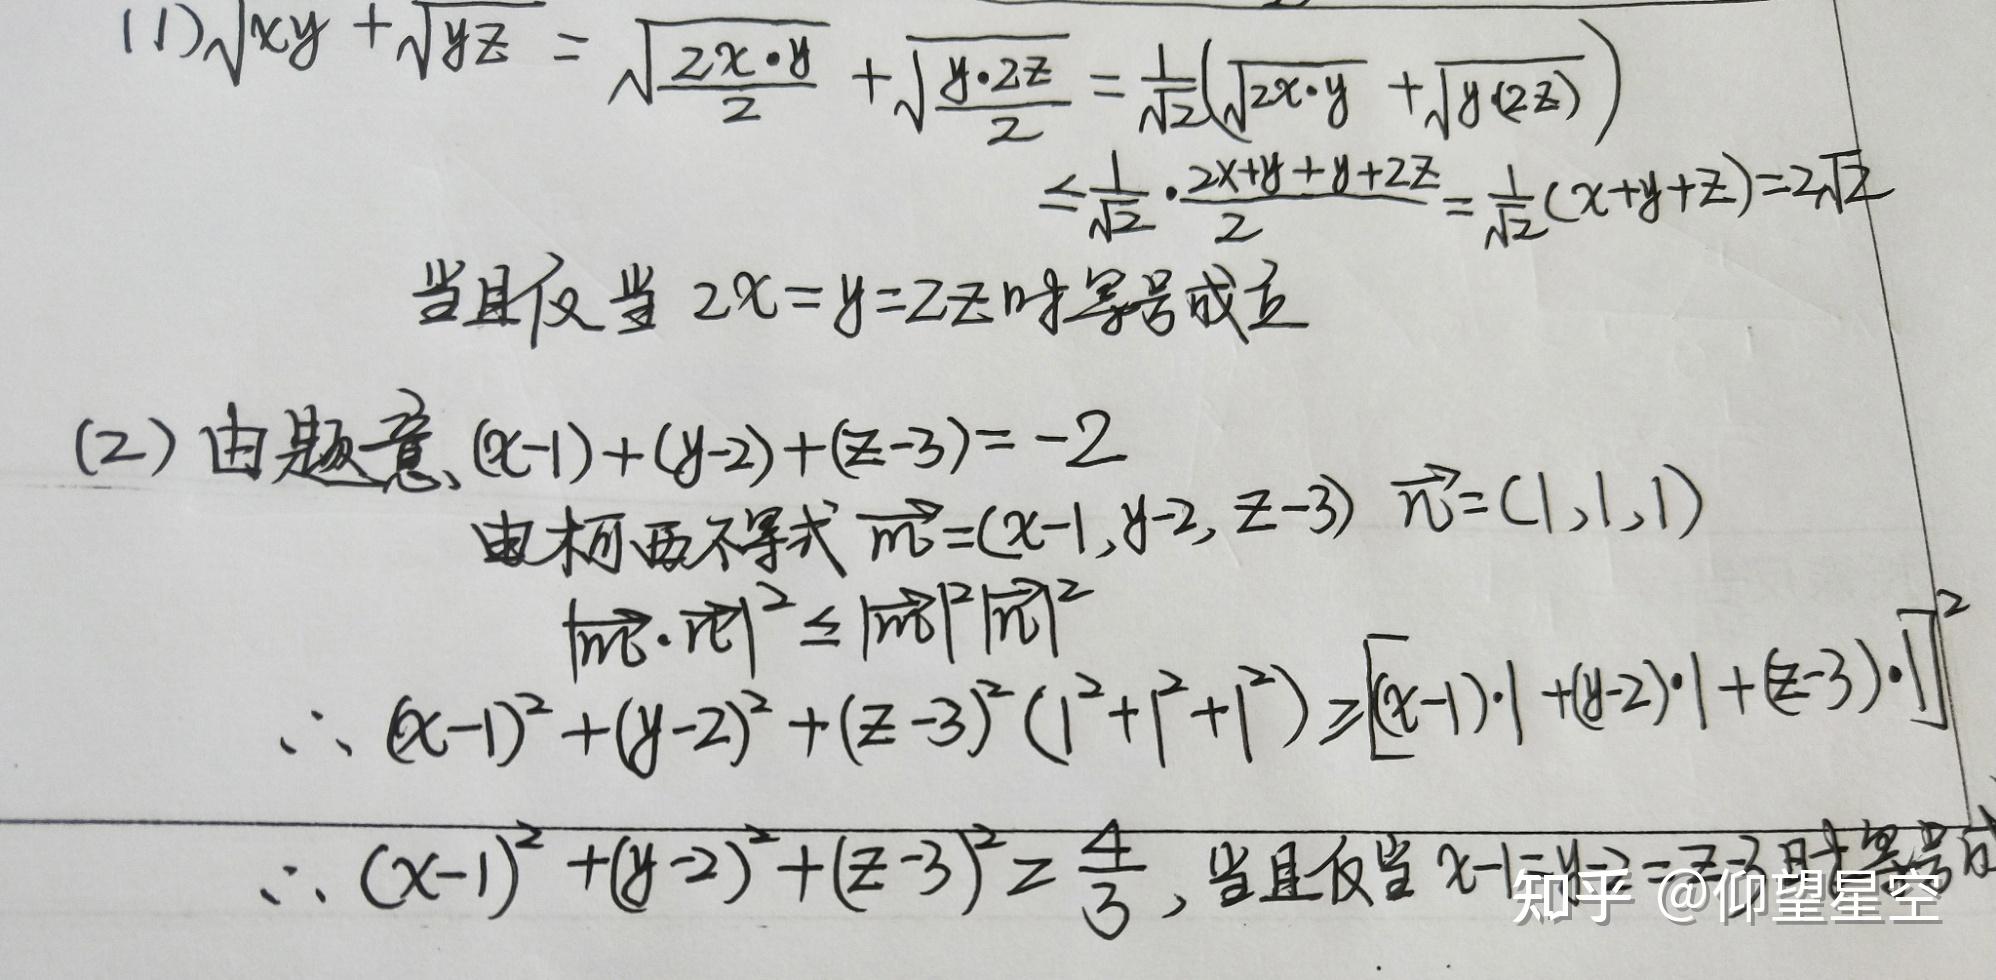 (1)√xy + √yz = √(2x·y/2) + √(y·2z/2) = 1/√2(√2x·y + √y·(2z))
≤ 1/√2 · (2x+y+y+2z)/2 = 1/√2(x+y+z)=2√2
当且仅当 2x=y=2z时等号成立
(2) 由题意、(x-1)+(y-2)+(z-3)=-2
由柯西不等式 m⃗=(x-1,y-2,z-3) n⃗=(1,1,1)
|m⃗·n⃗|² ≤ |m⃗|²|n⃗|²
∴ (x-1)²+(y-2)²+(z-3)²(1²+1²+1²)≥[(x-1)·1+(y-2)·1+(z-3)·1]²
∴ (x-1)²+(y-2)²+(z-3)²≥4/3,当且仅当 x-1=y-2=z-3时等号成
知乎 @仰望星空